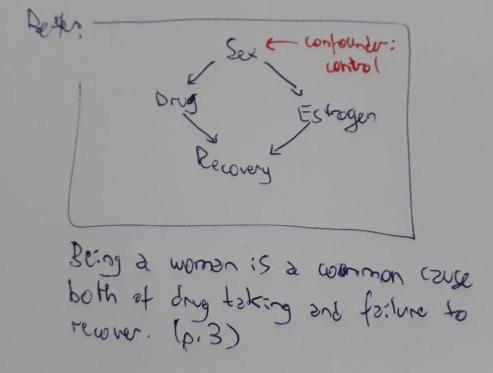 Better:
Sex ← confounder:
control
Drug
Estrogen
Recovery
Being a woman is a common cause
both of drug taking and failure to
recover. (p. 3)